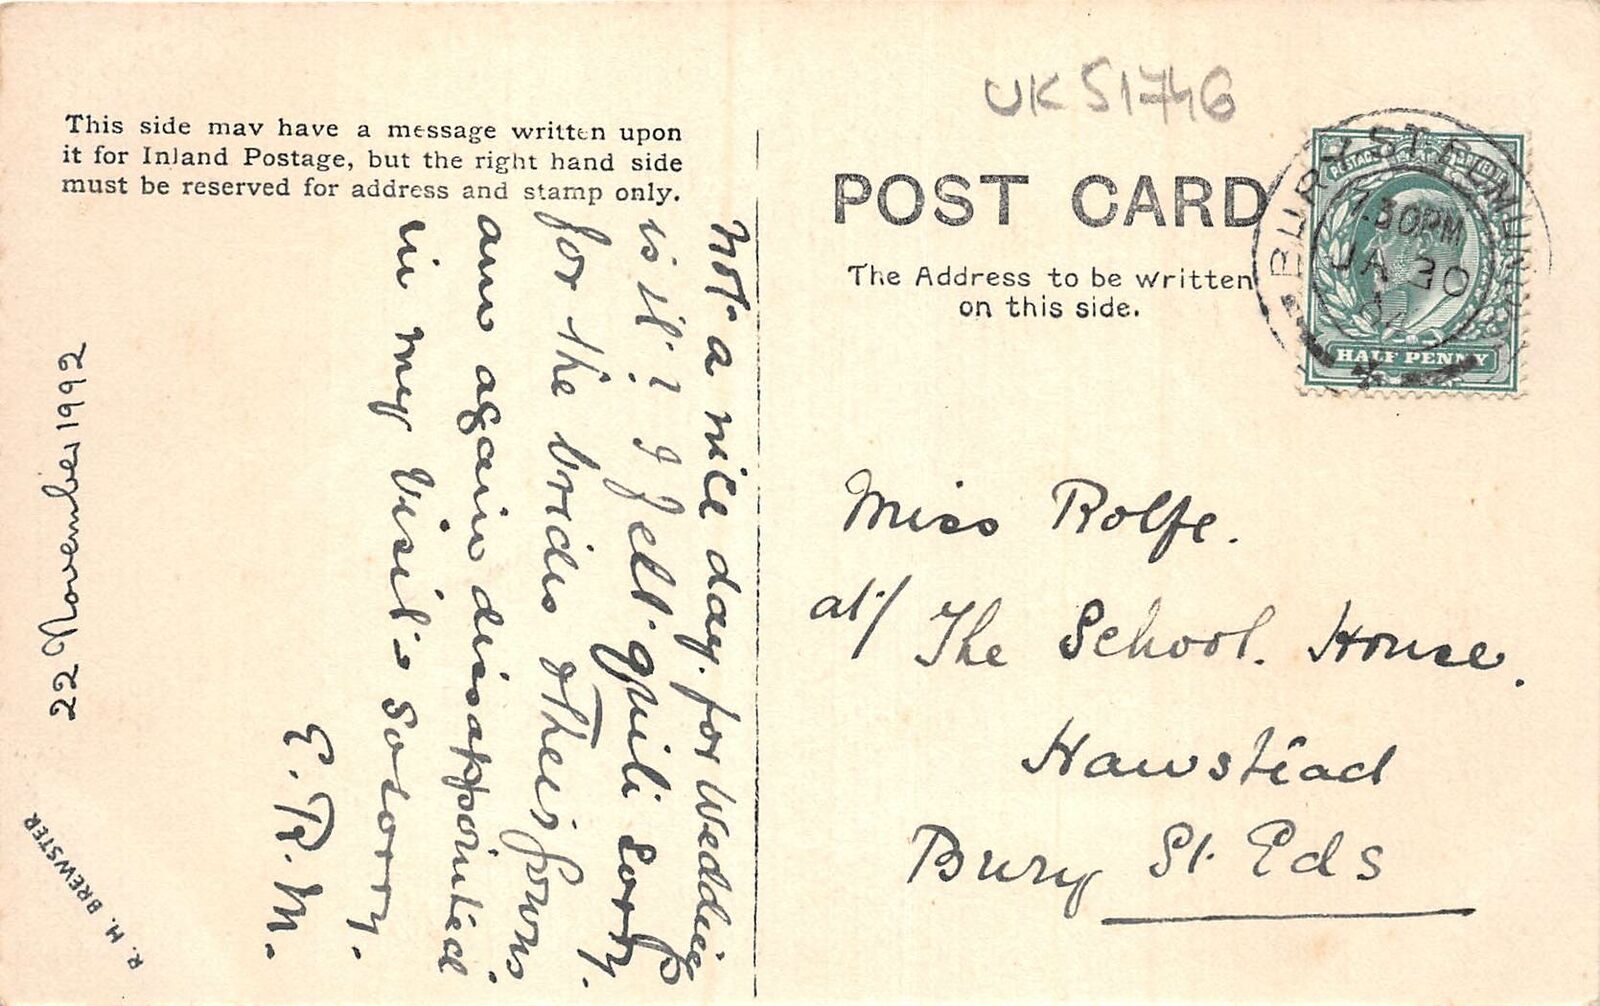 This side may have a message written upon
it for Inland Postage, but the right hand side
must be reserved for address and stamp only.
Not a nice day. for Wedding
is it? I felt quite sorry.
for the brides other
and again disappointed
in my visit. So sorry.
E. R. M.
22 November 1992
R. H. BREWSTER
UK 51746
POST CARD
The Address to be written
on this side.
BURY ST. EDMUNDS
7.30PM
JA 30
04
POSTAGE
HALF PENNY
Miss Rolfe.
at/ The School. House.
Hawstead
Bury St. Eds